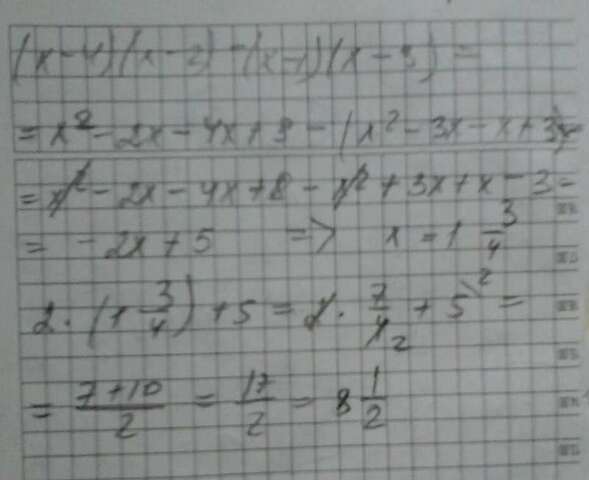 (x-4)(x-2)-(x-1)(x-3)=
=x²-2x-4x+8-(x²-3x-x+3)=
=x²-2x-4x+8-x²+3x+x-3=
=-2x+5 => x=1 3/4
2·(1 3/4)+5=2·7/4 2+5\2=
=7+10/2=17/2=8 1/2